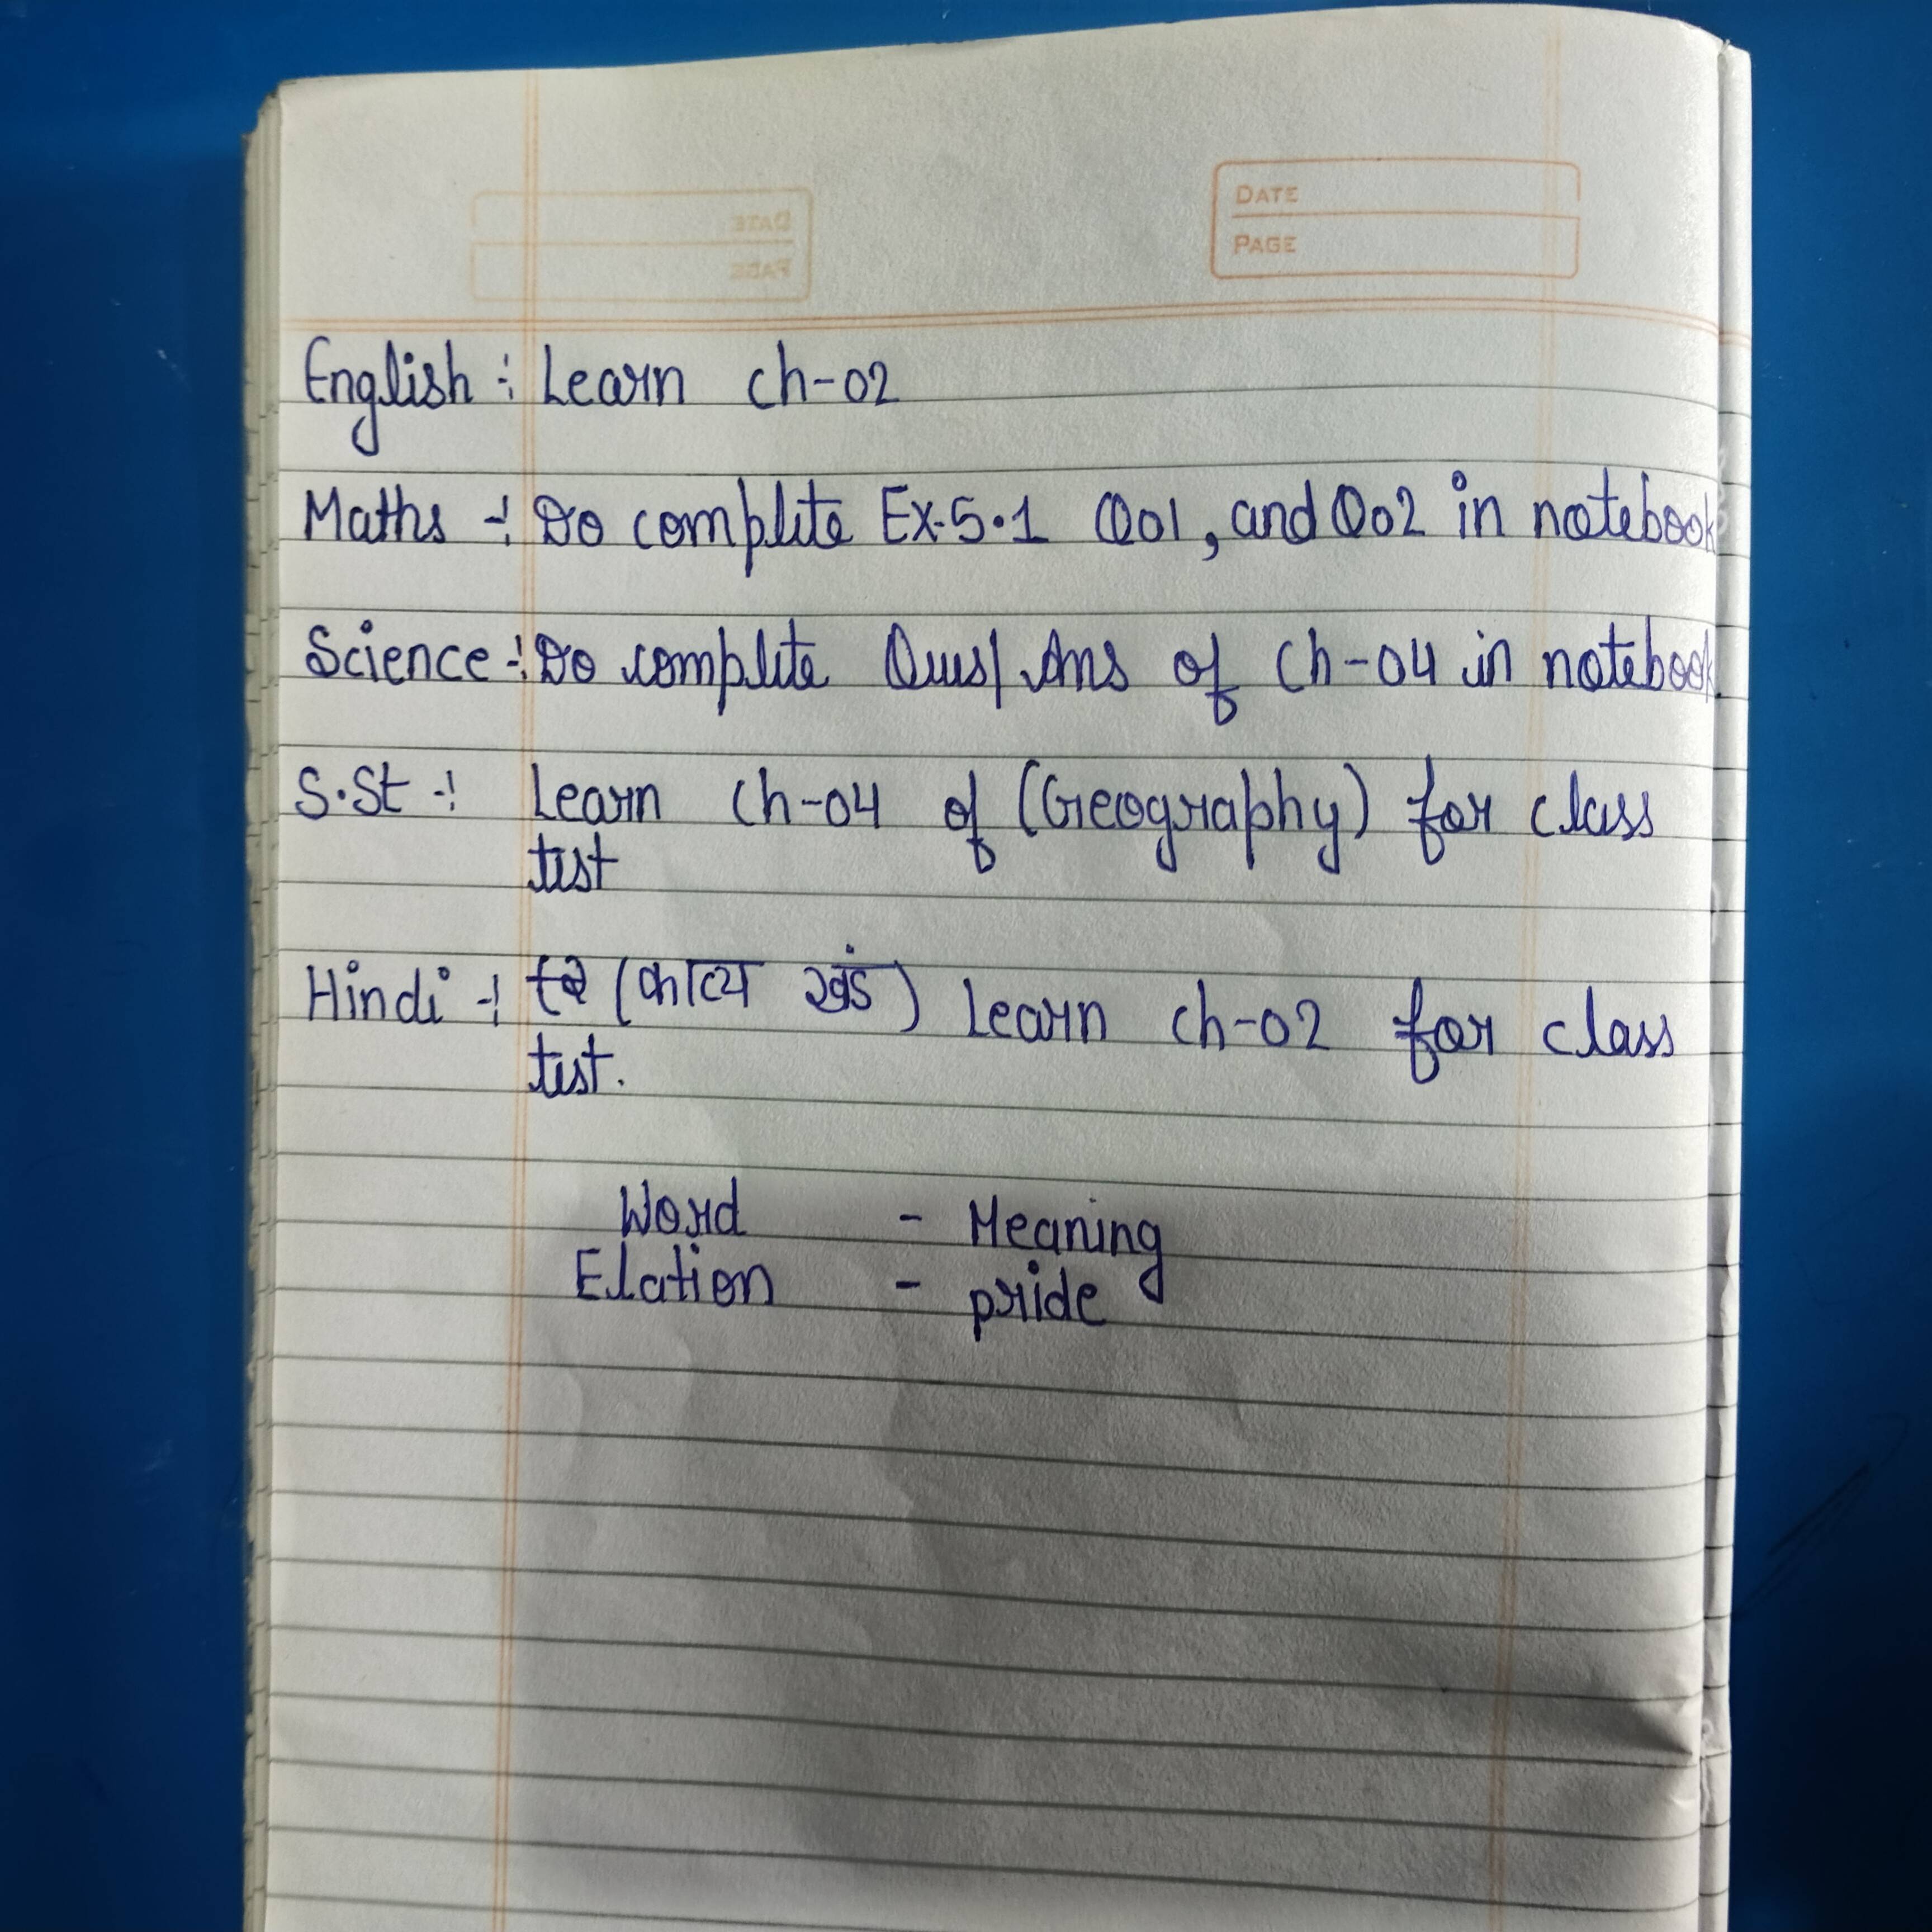 DATE
PAGE
English :- Learn ch-02
Maths :- Do complete Ex-5.1 Q01, and Q02 in notebook
Science :- Do complete Ques/Ans of Ch-04 in notebook.
S.St :- Learn Ch-04 of (Geography) for class
test
Hindi :- (काव्य खंड) Learn ch-02 for class
test.
Word - Meaning
Elation - pride